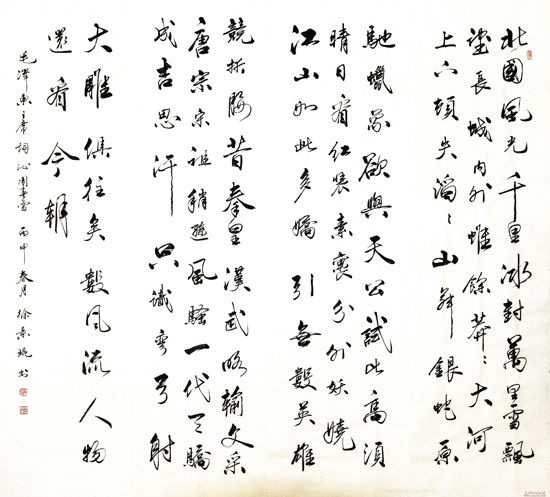 北國風光千里冰封萬里雪飄
望長城内外惟餘莽〻大河
上下頓失滔〻山舞銀蛇原
馳蠟象欲與天公試比高須
晴日看紅裝素裹分外妖嬈
江山如此多嬌引無數英雄
競折腰昔秦皇漢武略輸文采
唐宗宋祖稍遜風騷一代天驕
成吉思汗只識彎弓射
大雕俱往矣數風流人物
還看今朝
毛澤東主席詞沁園春雪丙申春月徐